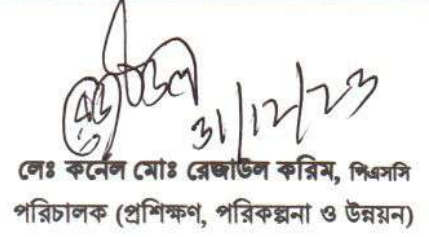 ৩১/১২/২৩
লেঃ কর্নেল মোঃ রেজাউল করিম, পিএসসি
পরিচালক (প্রশিক্ষণ, পরিকল্পনা ও উন্নয়ন)